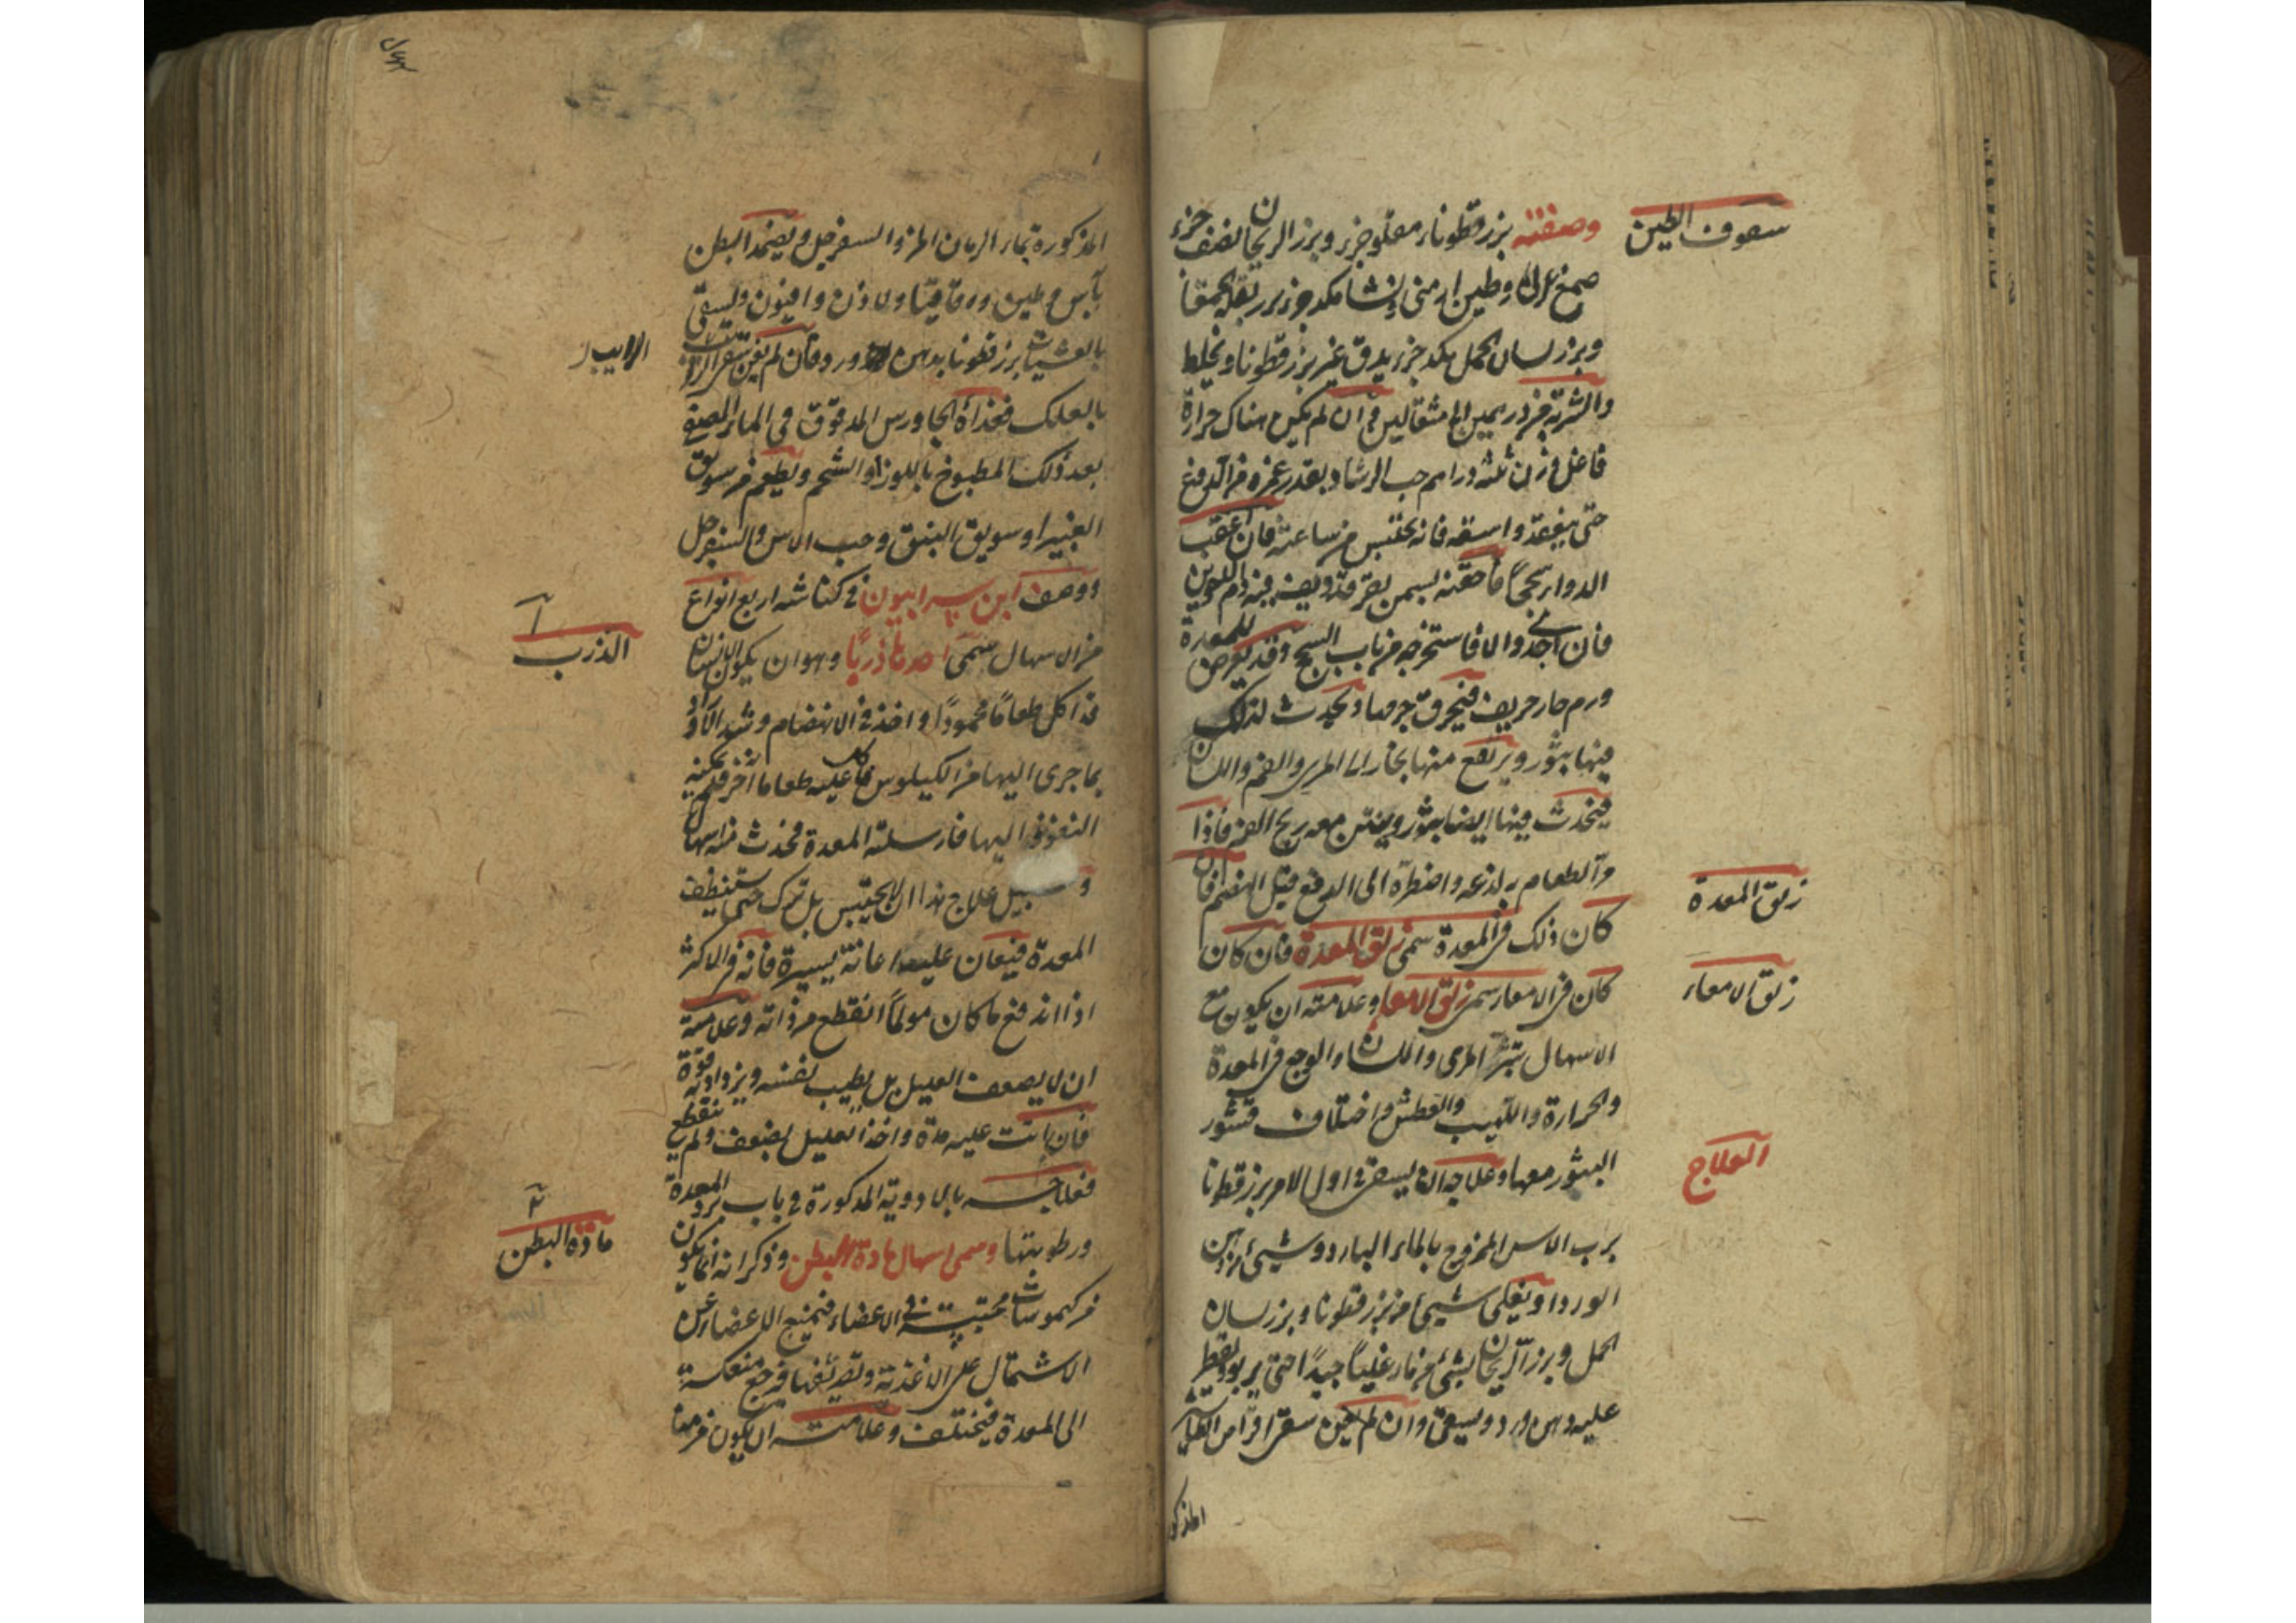 سفوف الطين
وصفته بزر قطوناء مقلو جزء وبزر الريحان نصف جزء
صمغ عربي وطين ارمني ونشا مكد جزء بزر بقلة الحمقا
وبزر لسان الحمل مكد جزء يدق غير بزر قطونا ويخلط
والشربة من درهمين الى مثقالين فان لم يكن هناك حرارة
فاغل وزن ثلثة دراهم حب الرشاد بقدر غمره من الدوغ
حتى ينعقد واسقه فانه يحتبس من ساعته فان اعقب
الدواء سحجًا فاحقنه بسمن بقر قد ديف فيه دم الاخوين
فان انجح والا فاستخرجه من باب السحج وقد يعرض للمعدة
ورم حار حريف فيحرق جرمها ويحدث لذلك
فيها بثور ويرتفع منها بخار الى المرى والفم واللسان
فيحدث فيها ايضا بثور وينتن معه ريح الفم فاذا
ورد الطعام يلذعه واضطره الى الدفع قبل الهضم فان
زلق المعدة
كان ذلك في المعدة سمى زلق المعدة فان كان
زلق الامعاء
كان في الامعاء سمى زلق الامعاء وعلامته ان يكون مع
الاسهال تبثر المرى واللسان والوجع في المعدة
والحرارة واللهيب والعطش واختلاف قشور
العلاج
البثور معها وعلاجه ان يسقى في اول الامر بزر قطونا
برب الاس الممزوج بالماء البارد وشيئ من دهن
الورد او يغلى شيئ من بزر قطونا وبزر لسان
الحمل وبزر الريحان بشيئ من نار غليًا جيدًا حتى يربو ويقطر
عليه دهن ورد ويسقى وان لم يغن سقى اقراص الطباشير
المذكو
المذكورة بماء الرمان المز والسفرجل ويضمد البطن
بآس وطين وقاقيا ولاذن وافيون ويسقى
بالعشيات بزر قطونا بدهن ورد فان لم يغن
بالعلك فغذاه الجاورس المدقوق في الماء المصفى
بعد ذلك المطبوخ باللوز او الشحم ويطعم من سويق
الغبيرا وسويق النبق وحب الاس والسفرجل
ووصف ابن سرابيون في كناشه اربع انواع
الذرب
من الاسهال سمى احدها ذربًا وهو ان يكون الانسان
قد اكل طعامًا محمودًا واخذ في الانهضام
بما جرى اليها من الكيلوس فاكل عليه طعاما آخر فلم يمكنه
النفوذ اليها فارسلته المعدة فحدث منه اسهال
وسبيل علاج هذا ان لا يحتبس بل يترك حتى يستنظف
المعدة فيعان عليه اعانة يسيرة فانه في الاكثر
اذا اندفع ما كان مولمًا انقطع من ذاته وعلامته
ان لا يضعف العليل بل يطيب نفسه ويزداد به قوة
فان اتت عليه مدة واخذ العليل يضعف ولم ينقطع
فعلاجه بالادوية المذكورة في باب برد المعدة
مادة البطن
ورطوبتها وسمى اسهال مادة البطن وذكر انه انما يكون
من كيموسات محتبسة في الاعضاء فيمنع الاعضاء عن
الاشتمال على الاغذية فترجع منعكسة
الى المعدة فيختلف وعلامته ان يكون